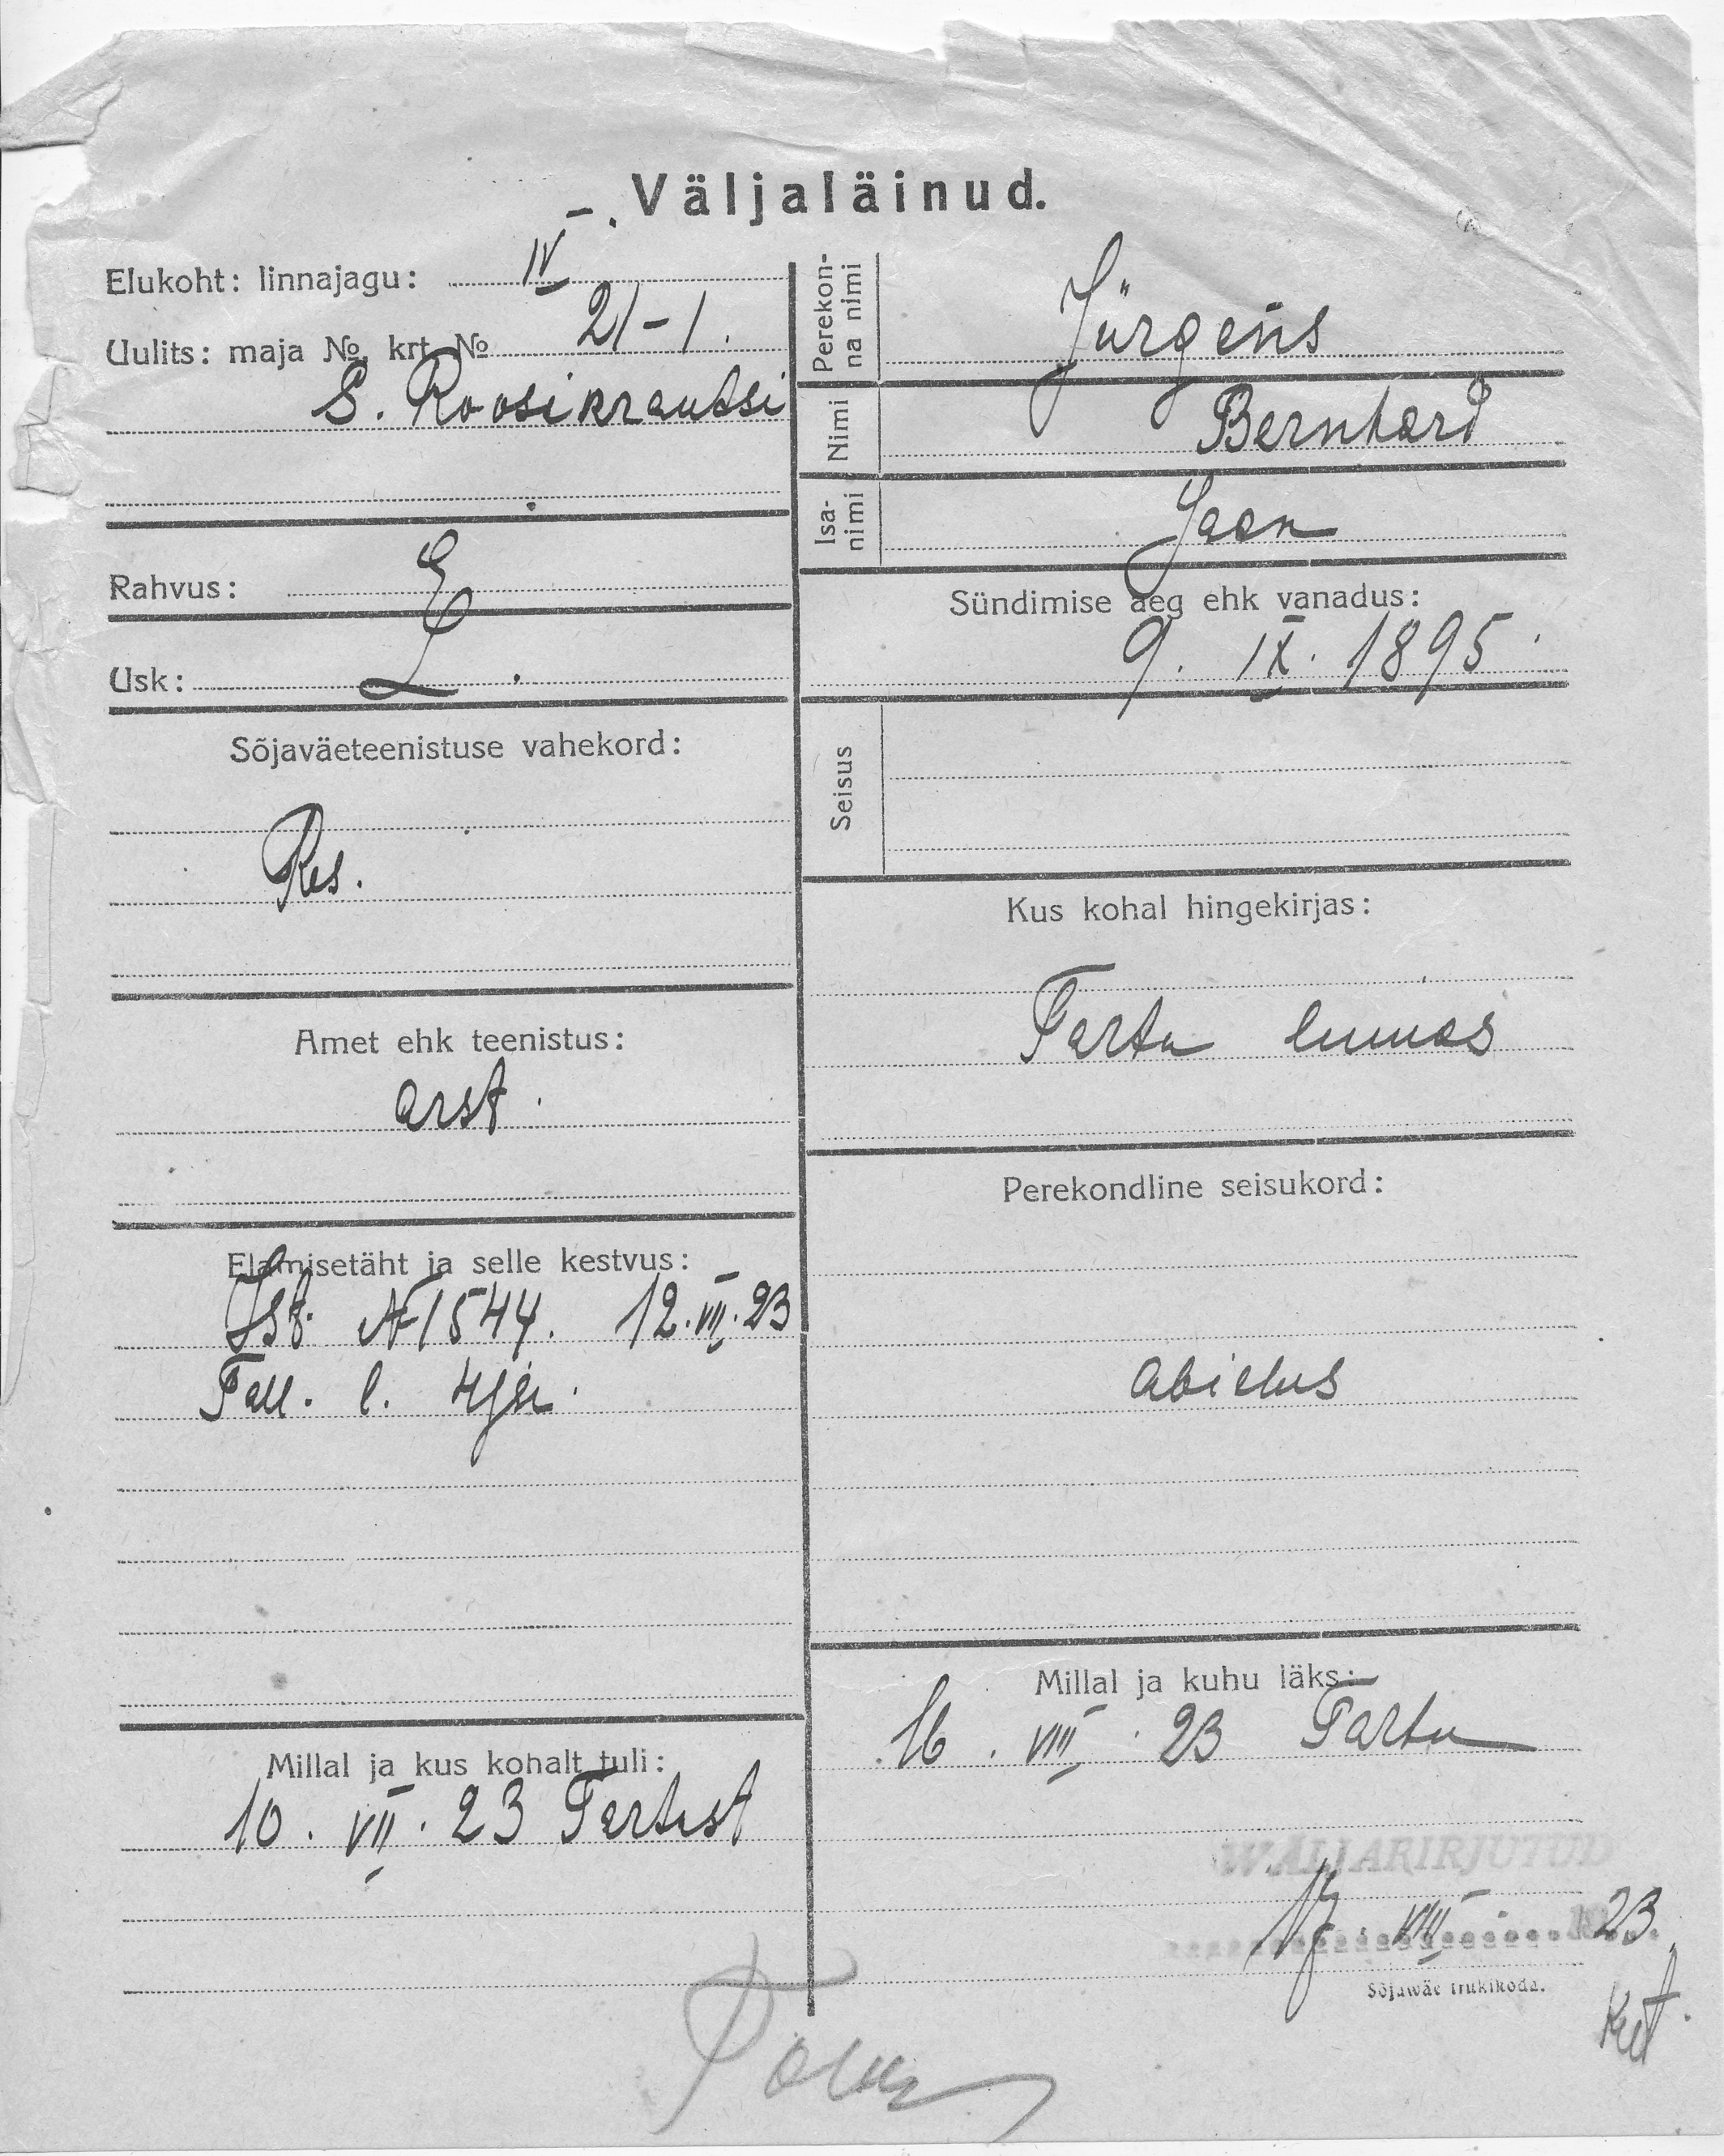 Väljaläinud.
Elukoht: linnajagu: IV
Uulits: maja № krt. № 21-1.
S. Roosikrantsi
Rahvus: E
Usk: L.
Sõjaväeteenistuse vahekord:
Res.
Amet ehk teenistus:
arst.
Elamisetäht ja selle kestvus:
Ist. № 1544. 12.VII.23
Tall. l.
Millal ja kus kohalt tuli:
10. VII. 23 Tartust
Perekon-
na nimi
Jürgens
Nimi
Bernhard
Isa-
nimi
Jaan
Sündimise aeg ehk vanadus:
9. IX. 1895.
Seisus
Kus kohal hingekirjas:
Tartu linnas
Perekondline seisukord:
abielus
Millal ja kuhu läks:
16. VIII. 23 Tartu
WÄLJAKIRJUTUD
17. VIII. 23.
Sõjawäe trukikoda.